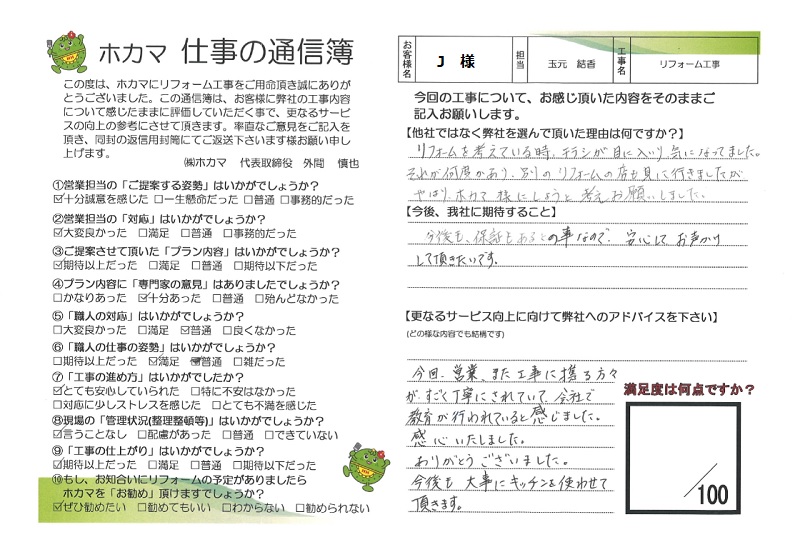 ホカマ 仕事の通信簿
この度は、ホカマにリフォーム工事をご用命頂き誠にありが
とうございました。この通信簿は、お客様に弊社の工事内容
について感じたままに評価していただく事で、更なるサービ
スの向上の参考にさせて頂きます。率直なご意見をご記入を
頂き、同封の返信用封筒にてご返送下さいます様お願い申し
上げます。
㈱ホカマ 代表取締役 外間 慎也
①営業担当の「ご提案する姿勢」はいかがでしょうか?
☑十分誠意を感じた □一生懸命だった □普通 □事務的だった
②営業担当の「対応」はいかがでしょうか?
☑大変良かった □満足 □普通 □事務的だった
③ご提案させて頂いた「プラン内容」はいかがでしょうか?
☑期待以上だった □満足 □普通 □期待以下だった
④プラン内容に「専門家の意見」はありましたでしょうか?
□かなりあった ☑十分あった □普通 □殆んどなかった
⑤「職人の対応」はいかがでしょうか?
□大変良かった □満足 ☑普通 □良くなかった
⑥「職人の仕事の姿勢」はいかがでしょうか?
□期待以上だった ☑満足 ■普通 □雑だった
⑦「工事の進め方」はいかがでしたか?
☑とても安心していられた □特に不安はなかった
□対応に少しストレスを感じた □とても不満を感じた
⑧現場の「管理状況(整理整頓等)」はいかがでしょうか?
☑言うことなし □配慮があった □普通 □できていない
⑨「工事の仕上がり」はいかがでしょうか?
☑期待以上だった □満足 □普通 □期待以下だった
⑩もし、お知合いにリフォームの予定がありましたら
ホカマを「お勧め」頂けますでしょうか?
☑ぜひ勧めたい □勧めてもいい □わからない □勧められない
お客様名 J 様 担当 玉元 結香 工事名 リフォーム工事
今回の工事について、お感じ頂いた内容をそのままご
記入お願いします。
【他社ではなく弊社を選んで頂いた理由は何ですか?】
リフォームを考えている時、チラシが目に入り、気になってました。
それが何度かあり、別のリフォームの店も見に行きましたが
やはり、ホカマ様にしようと考えお願いしました。
【今後、我社に期待すること】
今後も、保証もあるとの事なので、安心して お声かけ
して頂きたいです。
【更なるサービス向上に向けて弊社へのアドバイスを下さい】
(どの様な内容でも結構です)
今回、営業、また工事に携る方々
が、すごく丁寧にされていて、会社で
教育が行われていると感じました。
感心いたしました。
ありがとうございました。
今後も 大事にキッチンを使わせて
頂きます。
満足度は何点ですか?
/100